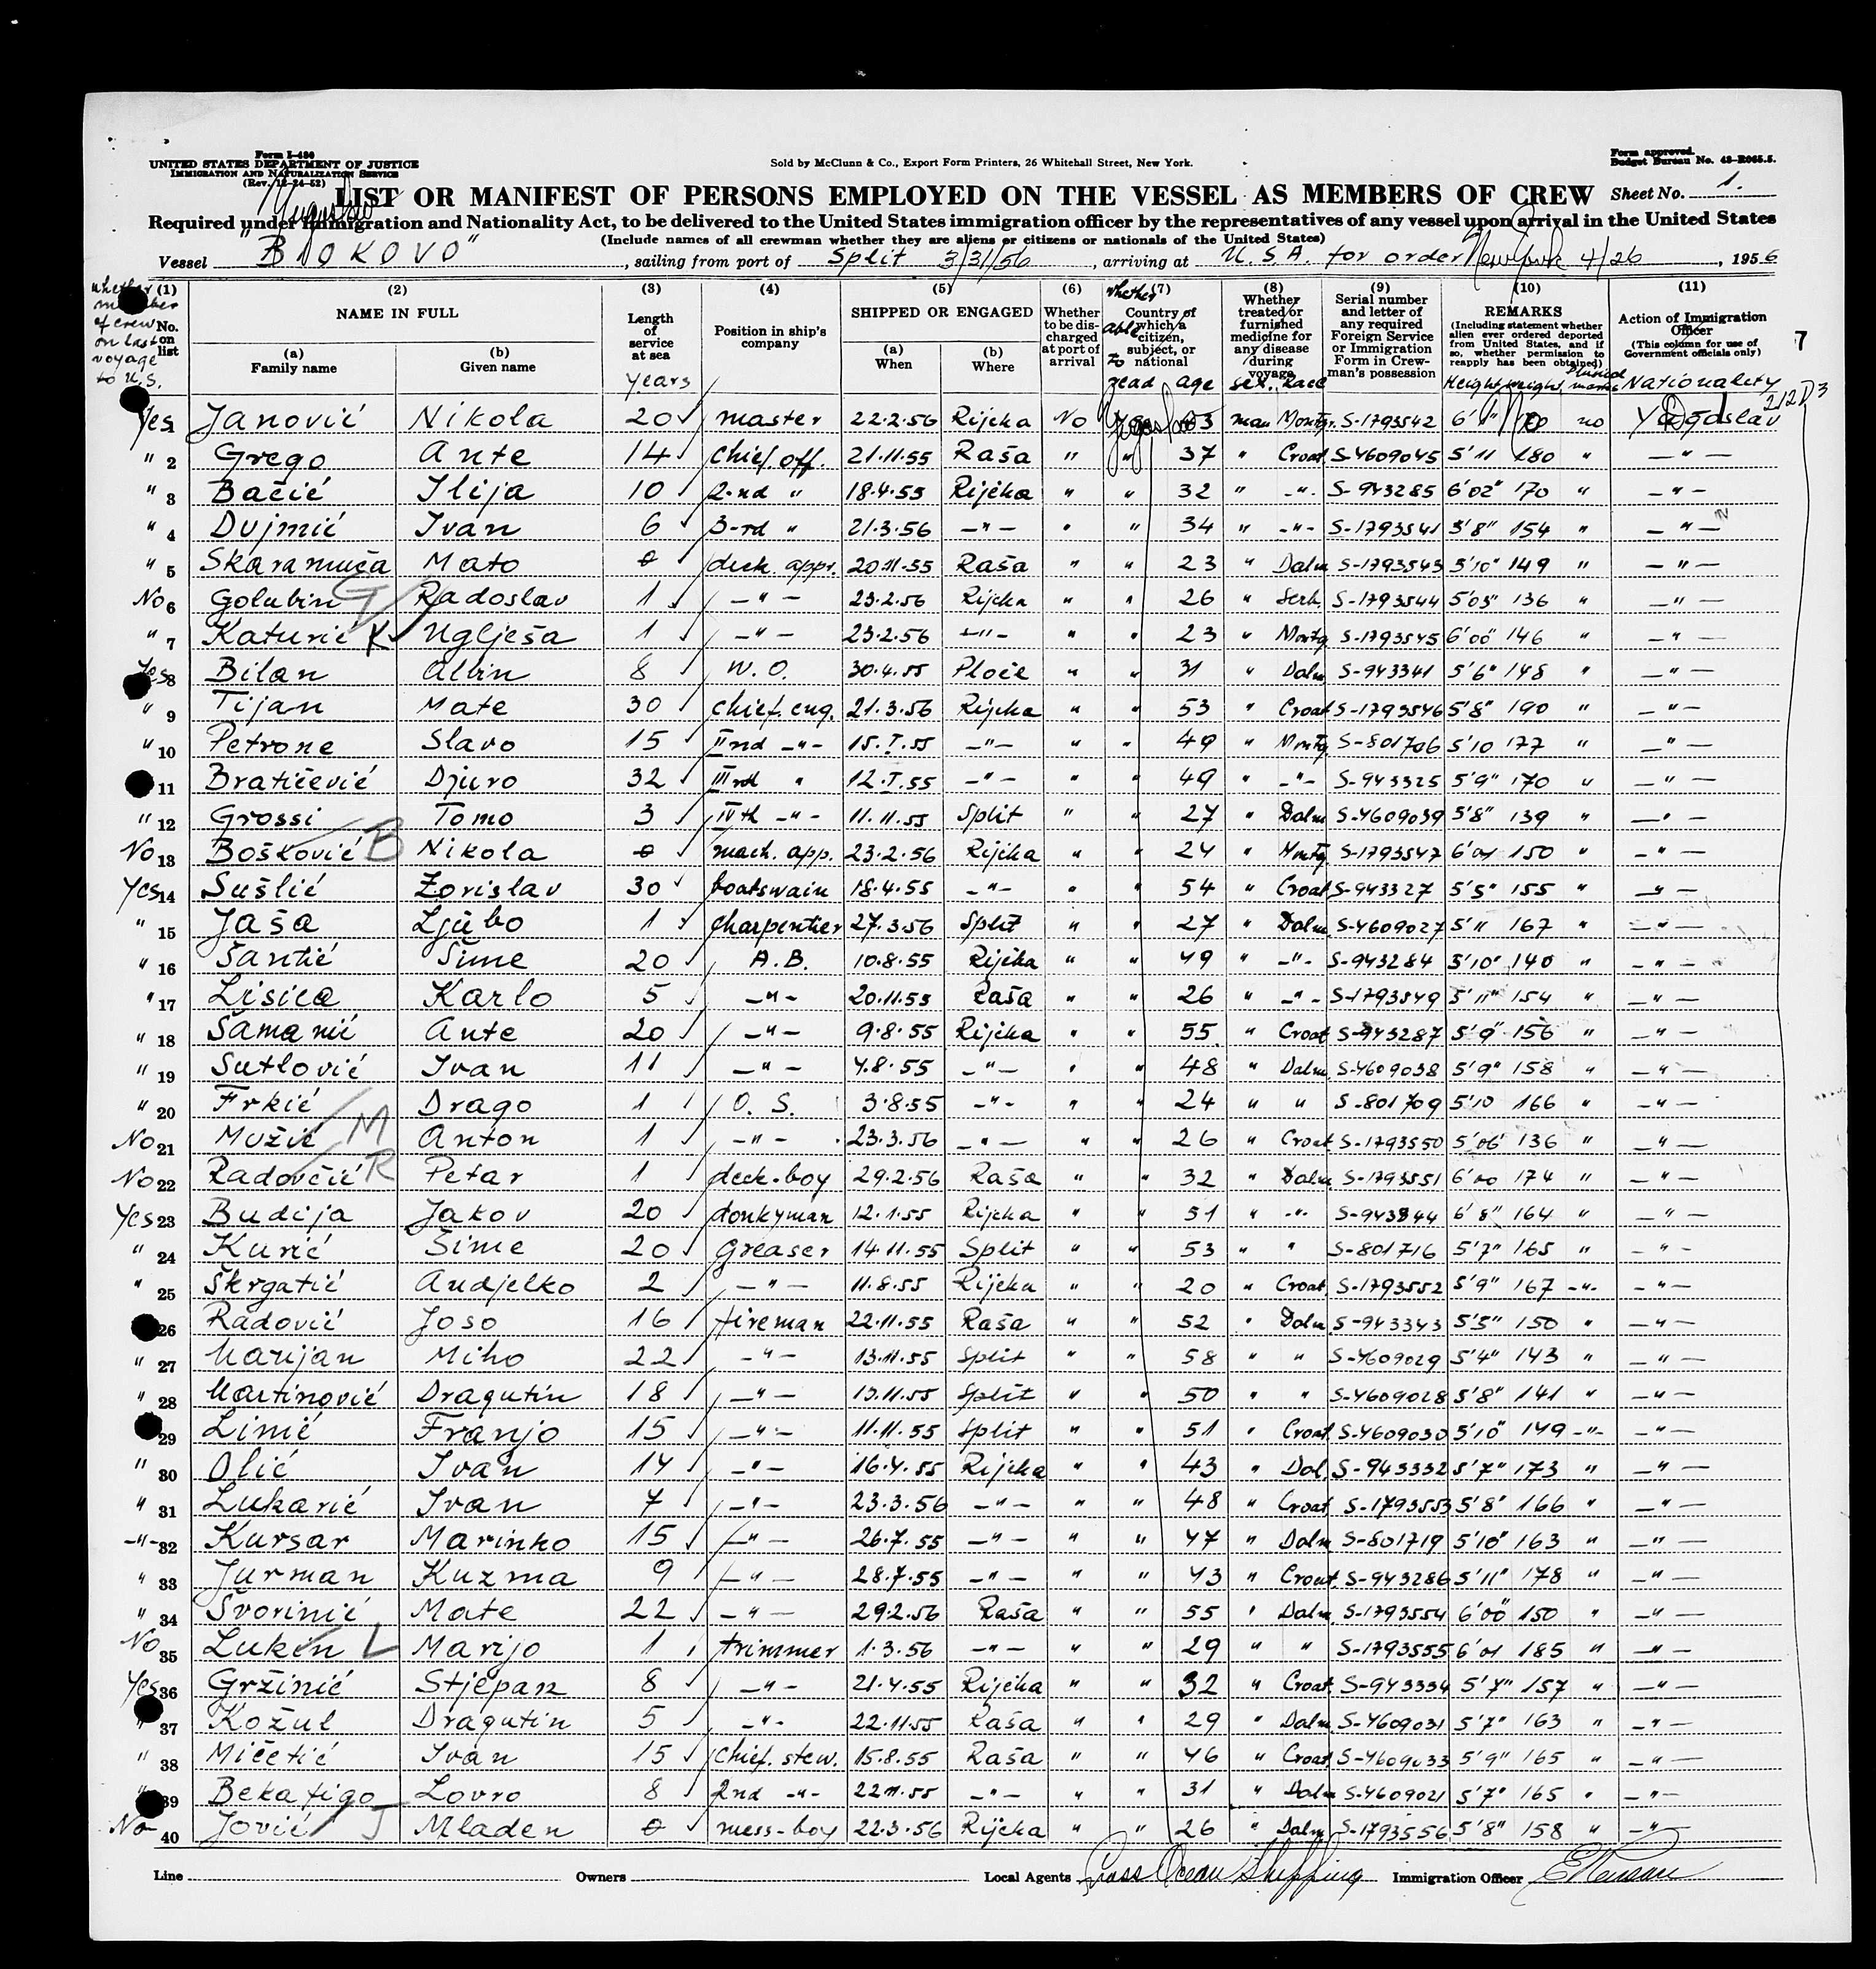 Form I-480
UNITED STATES DEPARTMENT OF JUSTICE
IMMIGRATION AND NATURALIZATION SERVICE
(Rev. 12-24-52)
Sold by McClunn & Co., Export Form Printers, 26 Whitehall Street, New York.
Form approved.
Budget Bureau No. 43-R065.5.
LIST OR MANIFEST OF PERSONS EMPLOYED ON THE VESSEL AS MEMBERS OF CREW Sheet No. 1.
Yugoslav
Required under Immigration and Nationality Act, to be delivered to the United States immigration officer by the representatives of any vessel upon arrival in the United States
(Include names of all crewman whether they are aliens or citizens or nationals of the United States)
Vessel "BIOKOVO", sailing from port of Split 3/31/56, arriving at U.S.A. for order New York 4/26, 1956
whether member of crew on last voyage to U.S.
(1) No. on list
(2) NAME IN FULL (a) Family name (b) Given name
(3) Length of service at sea years
(4) Position in ship's company
(5) SHIPPED OR ENGAGED (a) When (b) Where
(6) Whether to be discharged at port of arrival
(7) Country of which a citizen, subject, or national
whether able to read age
(8) Whether treated or furnished medicine for any disease during voyage
sex. Race
(9) Serial number and letter of any required Foreign Service or Immigration Form in Crewman's possession
(10) REMARKS (Including statement whether alien ever ordered deported from United States, and if so, whether permission to reapply has been obtained)
Height weight Phisical marks
(11) Action of Immigration Officer (This column for use of Government officials only)
Nationality
7
212D3
Yes 1 Janović Nikola 20 master 22.2.56 Rijeka No man Montgr. S-1793542 6' no Yugoslav
" 2 Grego Ante 14 chief. off. 21.11.55 Raša " " 37 " Croat. S-4609045 5'11 180 " —"—
" 3 Bačić Ilija 10 2-nd " 18.4.55 Rijeka " " 32 " -"- S-943285 6'02" 170 " —"—
" 4 Dujmić Ivan 6 3-rd " 21.3.56 —"— " " 34 " -"- S-1793541 5'8" 154 " —"—
" 5 Skaramuča Mato 0 deck. appr. 20.11.55 Raša " " 23 " Dalm S-1793543 5'10" 149 " —"—
No 6 Golubin G Radoslav 1 —"— 23.2.56 Rijeka " " 26 " Serb. S-1793544 5'03" 136 " —"—
" 7 Katurić K Uglješa 1 —"— 23.2.56 —"— " " 23 " Montg. S-1793545 6'00" 146 " —"—
Yes 8 Bilan Albin 8 W.O. 30.4.55 Ploče " " 31 " Dalm S-943341 5'6" 148 " —"—
" 9 Tijan Mate 30 chief. eng. 21.3.56 Rijeka " " 53 " Croat S-1793546 5'8" 190 " —"—
" 10 Petrone Slavo 15 IInd —"— 15.I.55 —"— " " 49 " Montg. S-801706 5'10 177 " —"—
11 Bratičević Djuro 32 IIIrd " 12.I.55 —"— " " 49 " -"- S-943325 5'9" 170 " —"—
" 12 Grossi Tomo 3 IVth —"— 11.11.55 Split " " 27 " Dalm S-4609039 5'8" 139 " —"—
No 13 Bošković B Nikola 0 mach. app. 23.2.56 Rijeka " " 24 " Montg. S-1793547 6'01 150 " —"—
Yes 14 Sušlić Zorislav 30 boatswain 18.4.55 —"— " " 54 " Croat S-943327 5'5" 155 " —"—
" 15 Jaša Ljubo 1 charpentier 27.3.56 Split " " 27 " Dalm. S-4609027 5'11 167 " —"—
" 16 Šantić Šime 20 A.B. 10.8.55 Rijeka " " 49 " -"- S-943284 5'10" 140 " —"—
" 17 Lisica Karlo 5 —"— 20.11.55 Raša " " 26 " -"- S-1793549 5'11" 154 " —"—
" 18 Šamanić Ante 20 —"— 9.8.55 Rijeka " " 55 " Croat S-943287 5'9" 156 " —"—
" 19 Sutlović Ivan 11 —"— 4.8.55 —"— " " 48 " Dalm. S-4609038 5'9" 158 " —"—
" 20 Frkić Drago 1 O.S. 3.8.55 —"— " " 24 " " S-801709 5'10 166 " —"—
No 21 Mužić M Anton 1 —"— 23.3.56 —"— " " 26 " Croat S-1793550 5'06" 136 " —"—
No 22 Radovčić R Petar 1 deck-boy 29.2.56 Raša " " 32 " Dalm. S-1793551 6'00 174 " —"—
Yes 23 Budija Jakov 20 donkyman 12.1.55 Rijeka " " 51 " -"- S-943344 6'8" 164 " —"—
" 24 Kurić Šime 20 Greaser 14.11.55 Split " " 53 " " S-801716 5'7" 165 " —"—
" 25 Škrgatić Andjelko 2 —"— 11.8.55 Rijeka " " 20 " Croat. S-1793552 5'9" 167 -"- —"—
26 Radović Joso 16 fireman 22.11.55 Raša " " 52 " Dalm. S-943343 5'5" 150 " —"—
" 27 Marijan Miho 22 —"— 13.11.55 Split " " 58 " " S-4609029 5'4" 143 " —"—
" 28 Martinović Dragutin 18 —"— 13.11.55 Split " " 50 " " S-4609028 5'8" 141 " —"—
29 Linić Franjo 15 —"— 11.11.55 Split " " 51 " Croat. S-4609030 5'10" 149 -"- —"—
" 30 Olić Ivan 14 —"— 16.4.55 Rijeka " " 43 " Dal. S-943332 5'7" 173 " —"—
" 31 Lukarić Ivan 7 —"— 23.3.56 —"— " " 48 " Croat S-1793553 5'8" 166 " —"—
-"- 32 Kursar Marinko 15 —"— 26.7.55 —"— " " 47 " Dalm S-801719 5'10" 163 " —"—
" 33 Jurman Kuzma 9 —"— 28.7.55 —"— " " 43 " Croat. S-943286 5'11" 178 " —"—
" 34 Švorinić Mate 22 —"— 29.2.56 Raša " " 55 " Dalm. S-1793554 6'00" 150 " —"—
No 35 Lukin L Marijo 1 trimmer 1.3.56 —"— " " 29 " " S-1793555 6'01 185 " —"—
Yes 36 Gržinić Stjepan 8 —"— 21.4.55 Rijeka " " 32 " Croat. S-943334 5'7" 157 " —"—
" 37 Kožul Dragutin 5 —"— 22.11.55 Raša " " 29 " Dalm S-4609031 5'7" 163 " —"—
" 38 Mičetić Ivan 15 chief. stew. 15.8.55 Raša " " 46 " Croat. S-4609033 5'9" 165 " —"—
" 39 Bekafigo Lovro 8 2nd -"- 22.11.55 —"— " " 31 " Dalm S-4609021 5'7" 165 " —"—
No 40 Jović J Mladen 0 mess-boy 22.3.56 Rijeka " " 26 " Dalm. S-1793556 5'8" 158 " —"—
Line Owners Local Agents Cross Ocean Shipping Immigration Officer